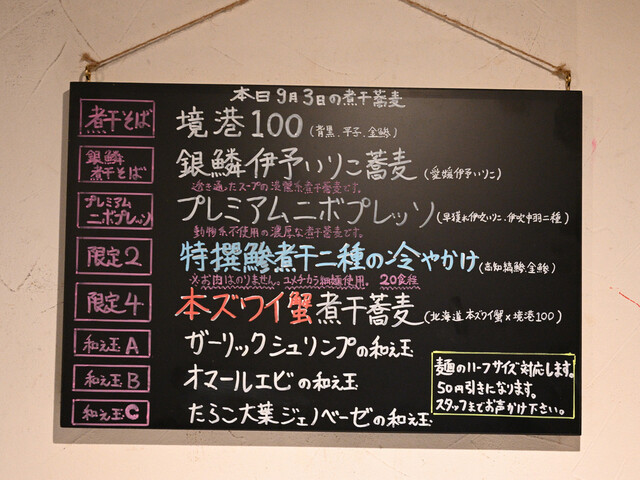 本日9月3日の煮干蕎麦
煮干そば 境港100（背黒、平子、金鯵）
銀鱗煮干そば 銀鱗伊予いりこ蕎麦（愛媛伊予いりこ）
透き通ったスープの淡麗系煮干蕎麦です。
プレミアムニボプレッソ プレミアムニボプレッソ（早獲れ伊吹いりこ、伊吹中羽二種）
動物系不使用の濃厚な煮干蕎麦です。
限定2 特撰鯵煮干二種の冷やかけ（高知縞鯵、金鯵）
※お肉はのりません。ユメチカラ細麺使用。20食程
限定4 本ズワイ蟹煮干蕎麦（北海道本ズワイ蟹×境港100）
和え玉A ガーリックシュリンプの和え玉
和え玉B オマールエビの和え玉
和え玉C たらこ大葉ジェノベーゼの和え玉
麺のハーフサイズ対応します。
50円引きになります。
スタッフまでお声かけ下さい。